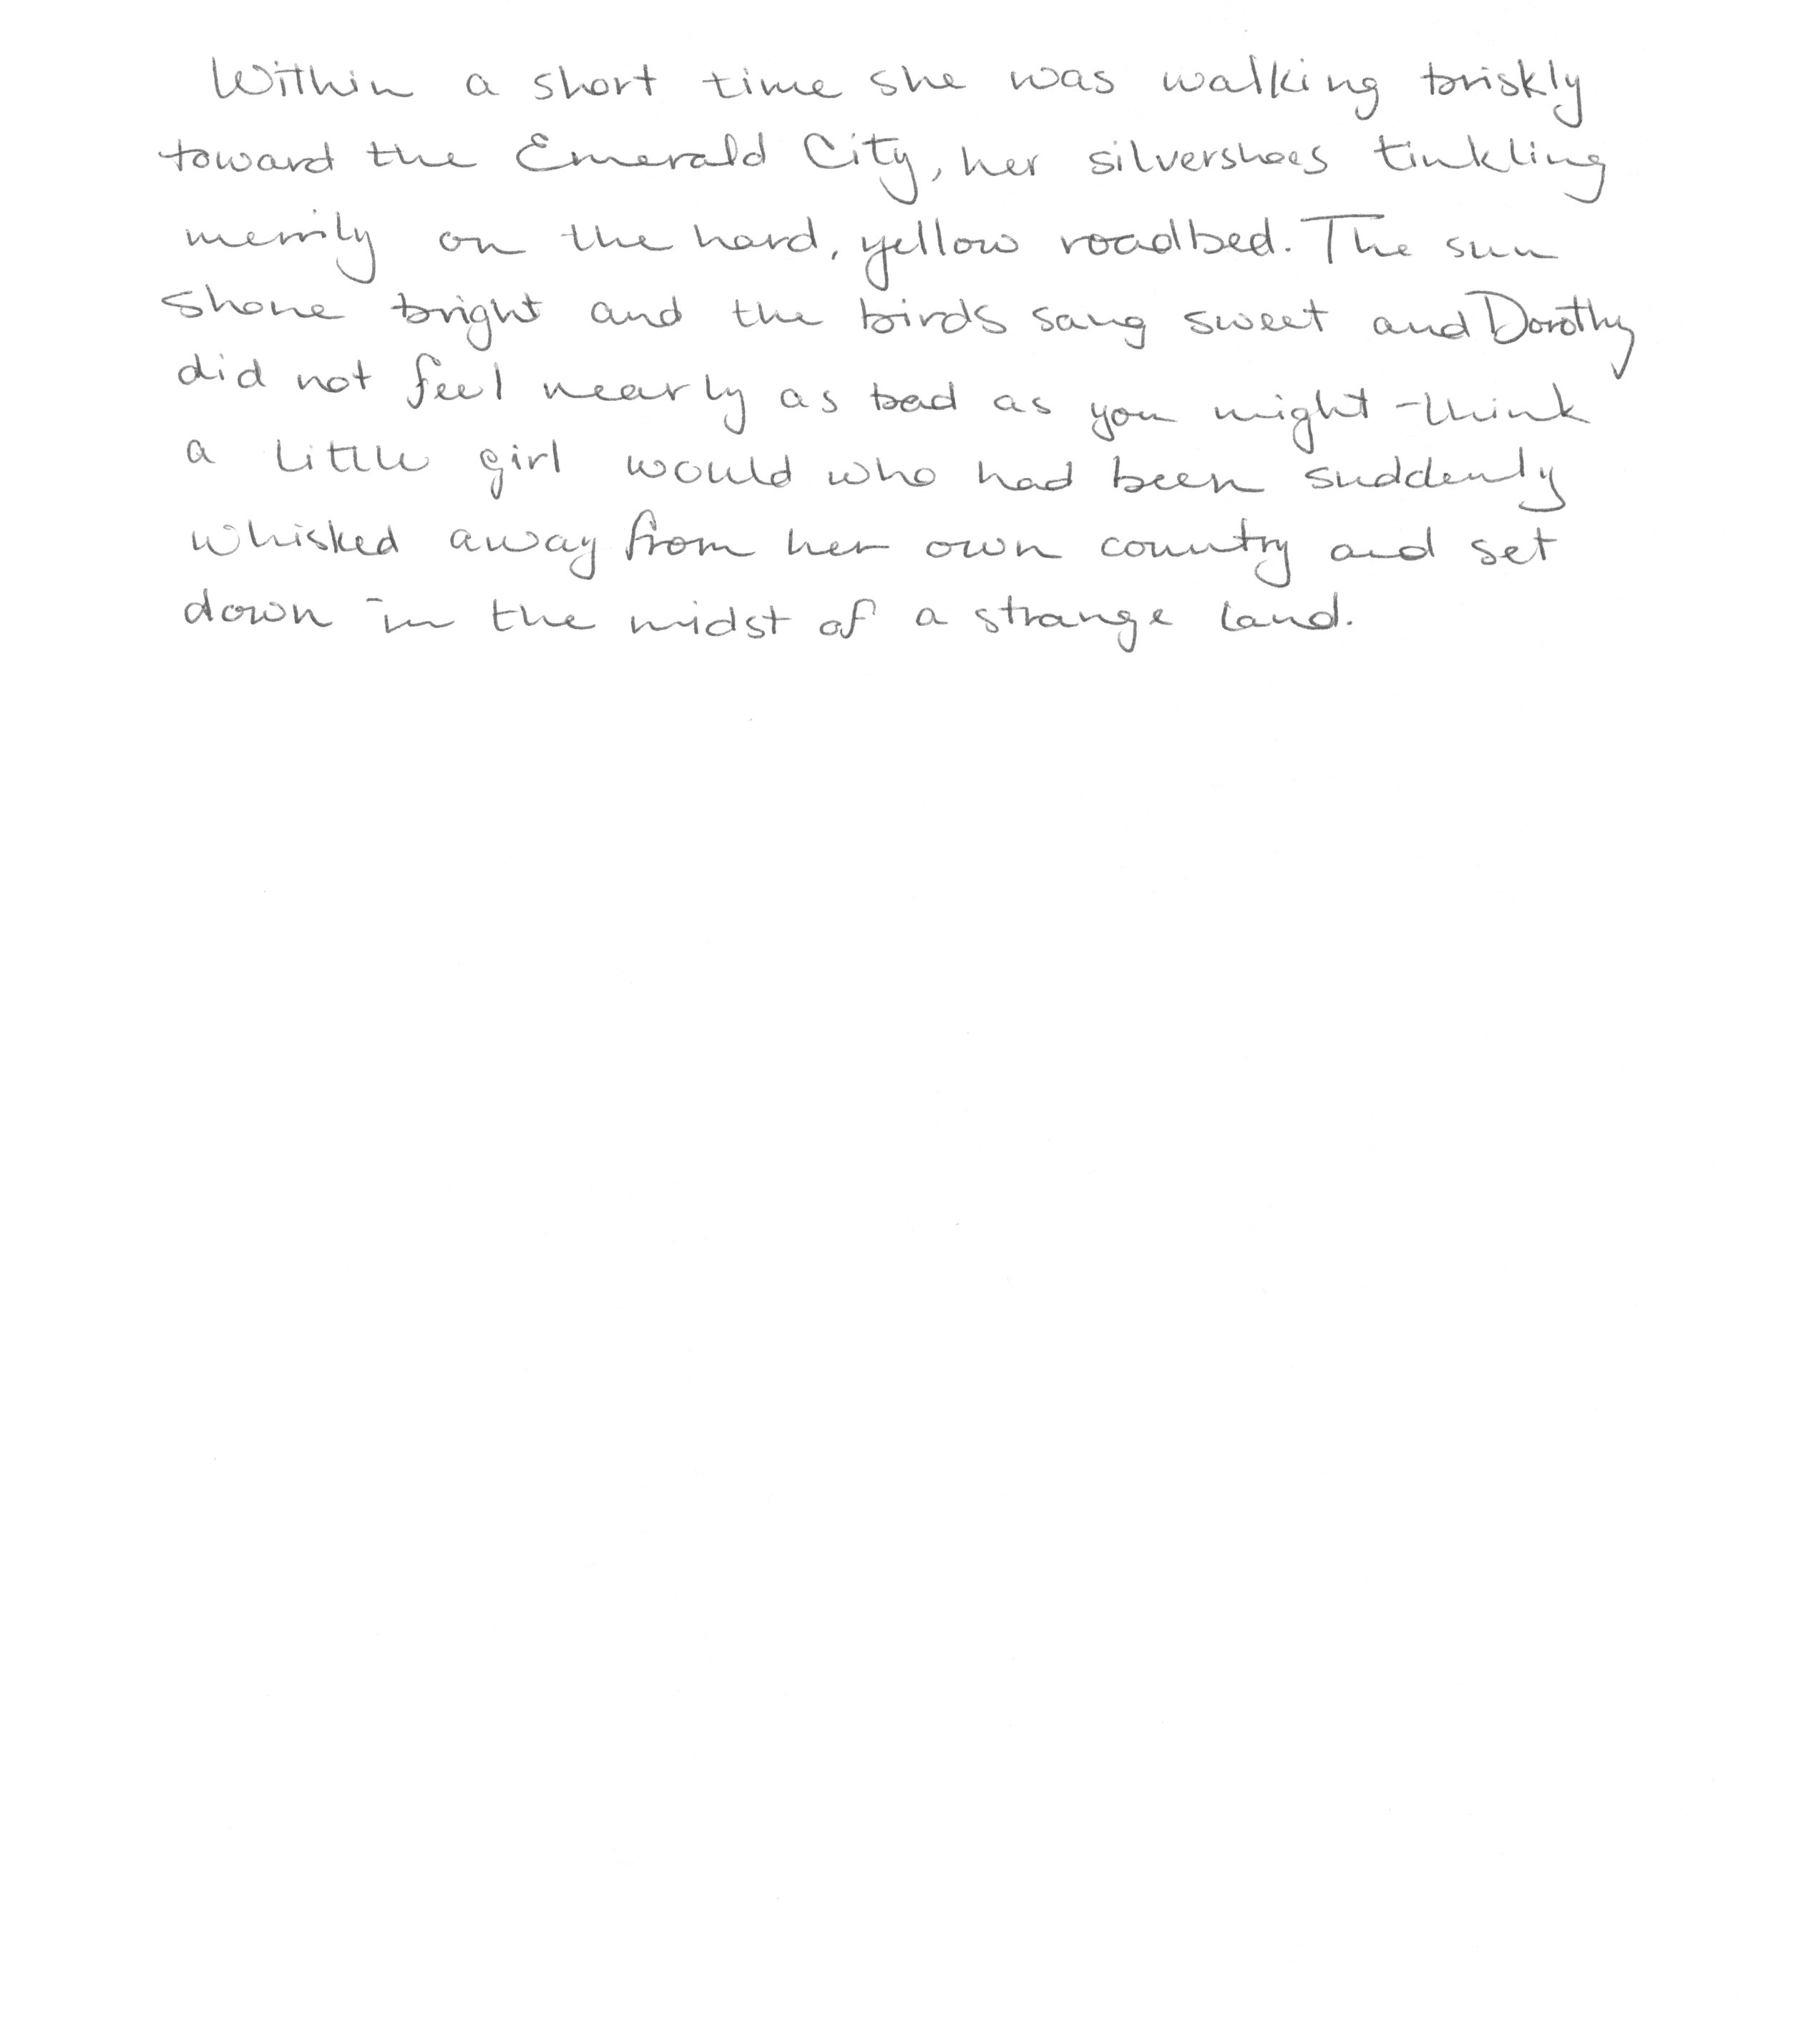 Within a short time she was walking briskly
toward the Emerald City, her silvershoes tinkling
merrily on the hard, yellow roadbed. The sun
shone bright and the birds sang sweet and Dorothy
did not feel nearly as bad as you might think
a little girl would who had been suddenly
whisked away from her own country and set
down in the midst of a strange land.